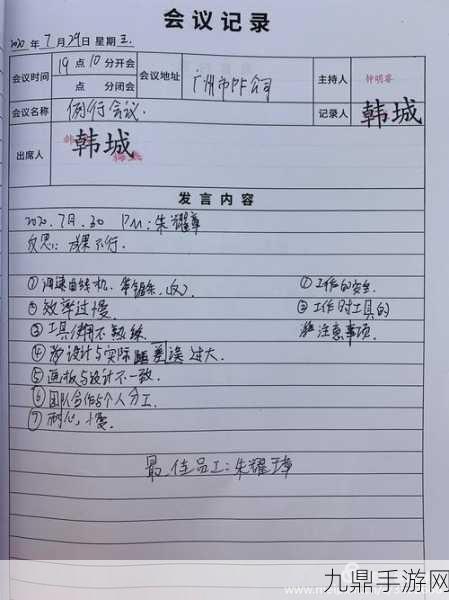 会议记录
2020 年 7 月 29 日 星期 三.
会议时间 19 点 10 分开会 点 分闭会 会议地址 广州市PF公司 主持人
会议名称 例行会议. 记录人 韩城
出席人 韩城
发言内容
2020.7月.30 PM:朱耀璋
反思:成果不行.
① 调速曲线机、带锯条、 ① 工作的安全.
② 效率过慢. ② 工作时工具的
③ 工具使用不熟练. 注意事项.
④ 设计与实际 差误过大.
⑤ 画板与设计不一致.
⑥ 团队合作与个人分工.
⑦ 耐心,慢.
最佳员工:朱耀璋
九鼎手游网